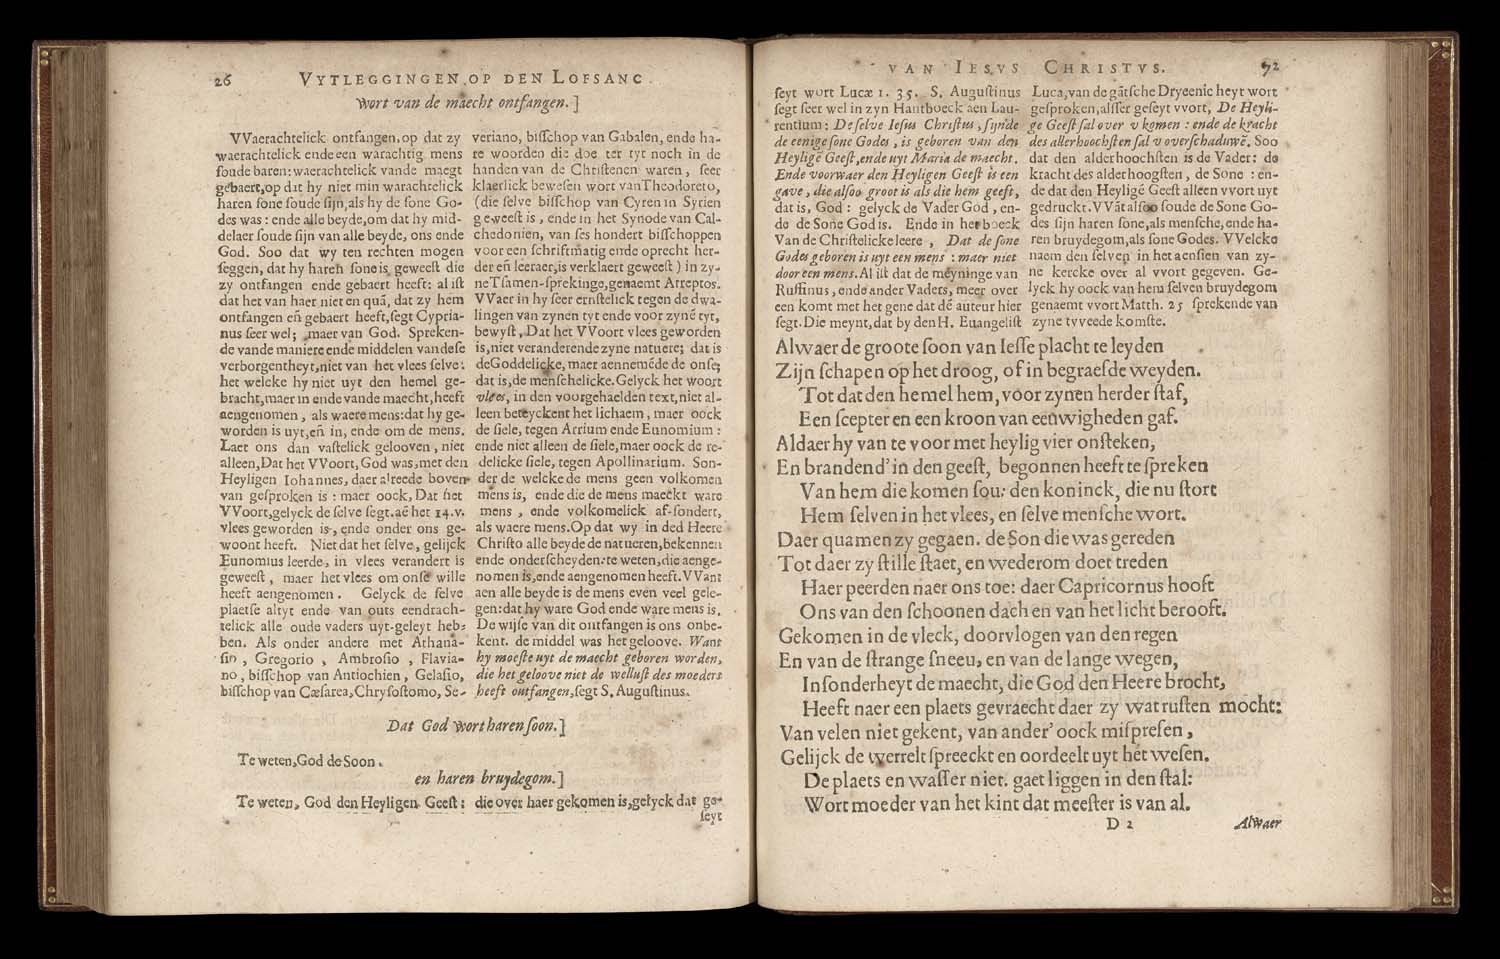 26 VYTLEGGINGEN OP DEN LOFSANC
Wort van de maecht ontfangen.]
VVaerachtelick ontfangen, op dat zy
waerachtelick ende een warachtig mens
soude baren: waerachtelick vande maegt
gebaert, op dat hy niet min warachtelick
haren sone soude sijn, als hy de sone Go-
des was: ende alle beyde, om dat hy mid-
delaer soude sijn van alle beyde, ons ende
God. Soo dat wy ten rechten mogen
seggen, dat hy haren sone is geweest die
zy ontfangen ende gebaert heeft: al ist
dat het van haer niet en quã, dat zy hem
ontfangen eñ gebaert heeft, segt Cypria-
nus seer wel; maer van God. Spreken-
de vande maniere ende middelen van dese
verborgentheyt, niet van het vlees selve:
het welcke hy niet uyt den hemel ge-
bracht, maer in ende vande maecht, heeft
aengenomen, als waere mens: dat hy ge-
worden is uyt, eñ in, ende om de mens.
Laet ons dan vastelick gelooven, niet
alleen, Dat het VVoort, God was, met den
Heyligen Iohannes, daer alreede boven
van gesproken is: maer oock, Dat het
VVoort, gelyck de selve segt. aẽ het 14. v.
vlees geworden is, ende onder ons ge-
woont heeft. Niet dat het selve, gelijck
Eunomius leerde, in vlees verandert is
geweest, maer het vlees om onse wille
heeft aengenomen. Gelyck de selve
plaetse altyt ende van outs eendrach-
telick alle oude vaders uyt-geleyt heb-
ben. Als onder andere met Athana-
sio, Gregorio, Ambrosio, Flavia-
no, bisschop van Antiochien, Gelasio,
bisschop van Cæsarea, Chrysostomo, Se-
veriano, bisschop van Gabalen, ende ha-
re woorden die doe ter tyt noch in de
handen van de Christenen waren, seer
klaerlick bewesen wort van Theodoreto,
(die selve bisschop van Cyren in Syrien
geweest is, ende in het Synode van Cal-
chedonien, van ses hondert bisschoppen
voor een schriftmatig ende oprecht her-
der eñ leeraer, is verklaert geweest) in zy-
ne Tsamen-sprekinge, genaemt Atreptos.
VVaer in hy seer ernstelick tegen de dwa-
lingen van zynen tyt ende voor zynẽ tyt,
bewyst, Dat het VVoort vlees geworden
is, niet veranderende zyne natuere; dat is
de Goddelicke, maer aennemẽde de onse;
dat is, de menschelicke. Gelyck het woort
vlees, in den voorgehaelden text, niet al-
leen beteyckent het lichaem, maer oock
de siele, tegen Arrium ende Eunomium:
ende niet alleen de siele, maer oock de re-
delicke siele, tegen Apollinarium. Son-
der de welcke de mens geen volkomen
mens is, ende die de mens maeckt ware
mens, ende volkomelick af-sondert,
als waere mens. Op dat wy in ded Heere
Christo alle beyde de natueren, bekennen
ende onderscheyden: te weten, die aenge-
nomen is, ende aengenomen heeft. VVant
aen alle beyde is de mens even veel gele-
gen: dat hy ware God ende ware mens is.
De wijse van dit ontfangen is ons onbe-
kent. de middel was het geloove. Want
hy moeste uyt de maecht geboren worden,
die het geloove niet de wellust des moeders
heeft ontfangen, segt S. Augustinus.
Dat God wort haren soon.]
Te weten, God de Soon.
en haren bruydegom.]
Te weten, God den Heyligen Geest: die over haer gekomen is, gelyck dat ge-
seyt
VAN IESVS CHRISTVS. 72
seyt wort Lucæ 1. 35. S. Augustinus
segt seer wel in zyn Hantboeck aen Lau-
rentium: De selve Iesus Christus, sijnde
de eenige sone Godes, is geboren van den
Heyligẽ Geest, ende uyt Maria de maecht.
Ende voorwaer den Heyligen Geest is een
gave, die alsoo groot is als die hem geeft,
dat is, God: gelyck de Vader God, en-
de de Sone God is. Ende in het boeck
Van de Christelicke leere, Dat de sone
Godes geboren is uyt een mens: maer niet
door een mens. Al ist dat de meyninge van
Ruffinus, ende ander Vaders, meer over
een komt met het gene dat dẽ auteur hier
segt. Die meynt, dat by den H. Euangelist
Luca, van de gãtsche Dryeenic heyt wort
gesproken, alsser geseyt vvort, De Heyli-
ge Geest sal over v komen: ende de kracht
des allerhoochsten sal v overschaduwẽ. Soo
dat den alderhoochsten is de Vader: de
kracht des alderhoogsten, de Sone: en-
de dat den Heyligẽ Geest alleen vvort uyt
gedruckt. VVãt alsoo soude de Sone Go-
des sijn haren sone, als mensche, ende ha-
ren bruydegom, als sone Godes. VVelcke
naem den selven in het aensien van zy-
ne kercke over al vvort gegeven. Ge-
lyck hy oock van hem selven bruydegom
genaemt vvort Matth. 25 sprekende van
zyne tvveede komste.
Alwaer de groote soon van Iesse placht te leyden
Zijn schapen op het droog, of in begraesde weyden.
Tot dat den hemel hem, voor zynen herder staf,
Een scepter en een kroon van eenwigheden gaf.
Aldaer hy van te voor met heylig vier onsteken,
En brandend' in den geest, begonnen heeft te spreken
Van hem die komen sou: den koninck, die nu stort
Hem selven in het vlees, en selve mensche wort.
Daer quamen zy gegaen. de Son die was gereden
Tot daer zy stille staet, en wederom doet treden
Haer peerden naer ons toe: daer Capricornus hooft
Ons van den schoonen dach en van het licht berooft.
Gekomen in de vleck, doorvlogen van den regen
En van de strange sneeu, en van de lange wegen,
Insonderheyt de maecht, die God den Heere brocht,
Heeft naer een plaets gevraecht daer zy wat rusten mocht:
Van velen niet gekent, van ander' oock mispresen,
Gelijck de werrelt spreeckt en oordeelt uyt het wesen.
De plaets en wasser niet. gaet liggen in den stal:
Wort moeder van het kint dat meester is van al.
D 2 Alwaer